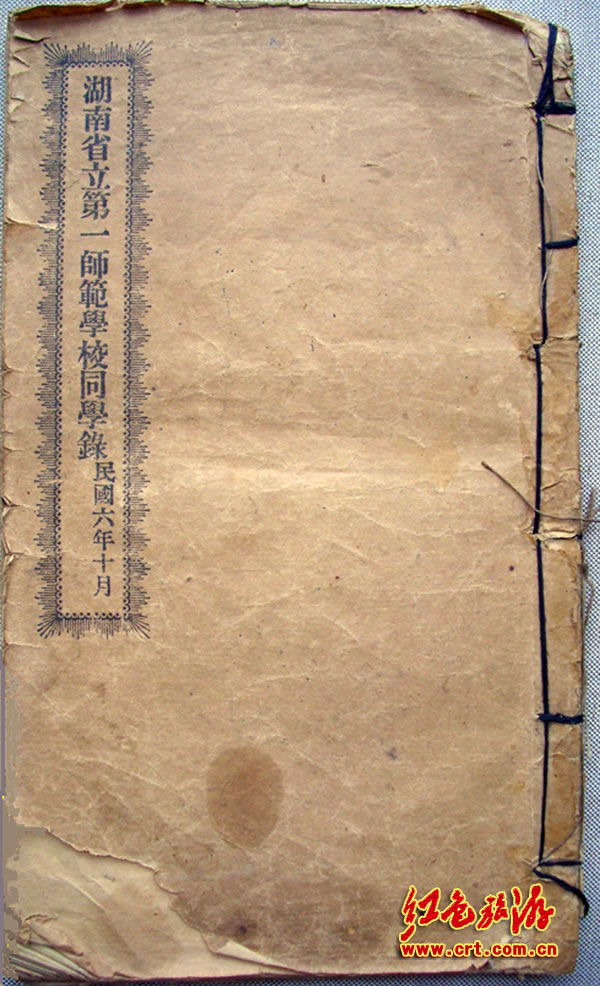 湖南省立第一師範學校同學錄民國六年十月
红色旅游
www.crt.com.cn